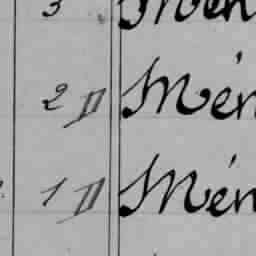 3 Mén
2 II Mén
1 II Mén